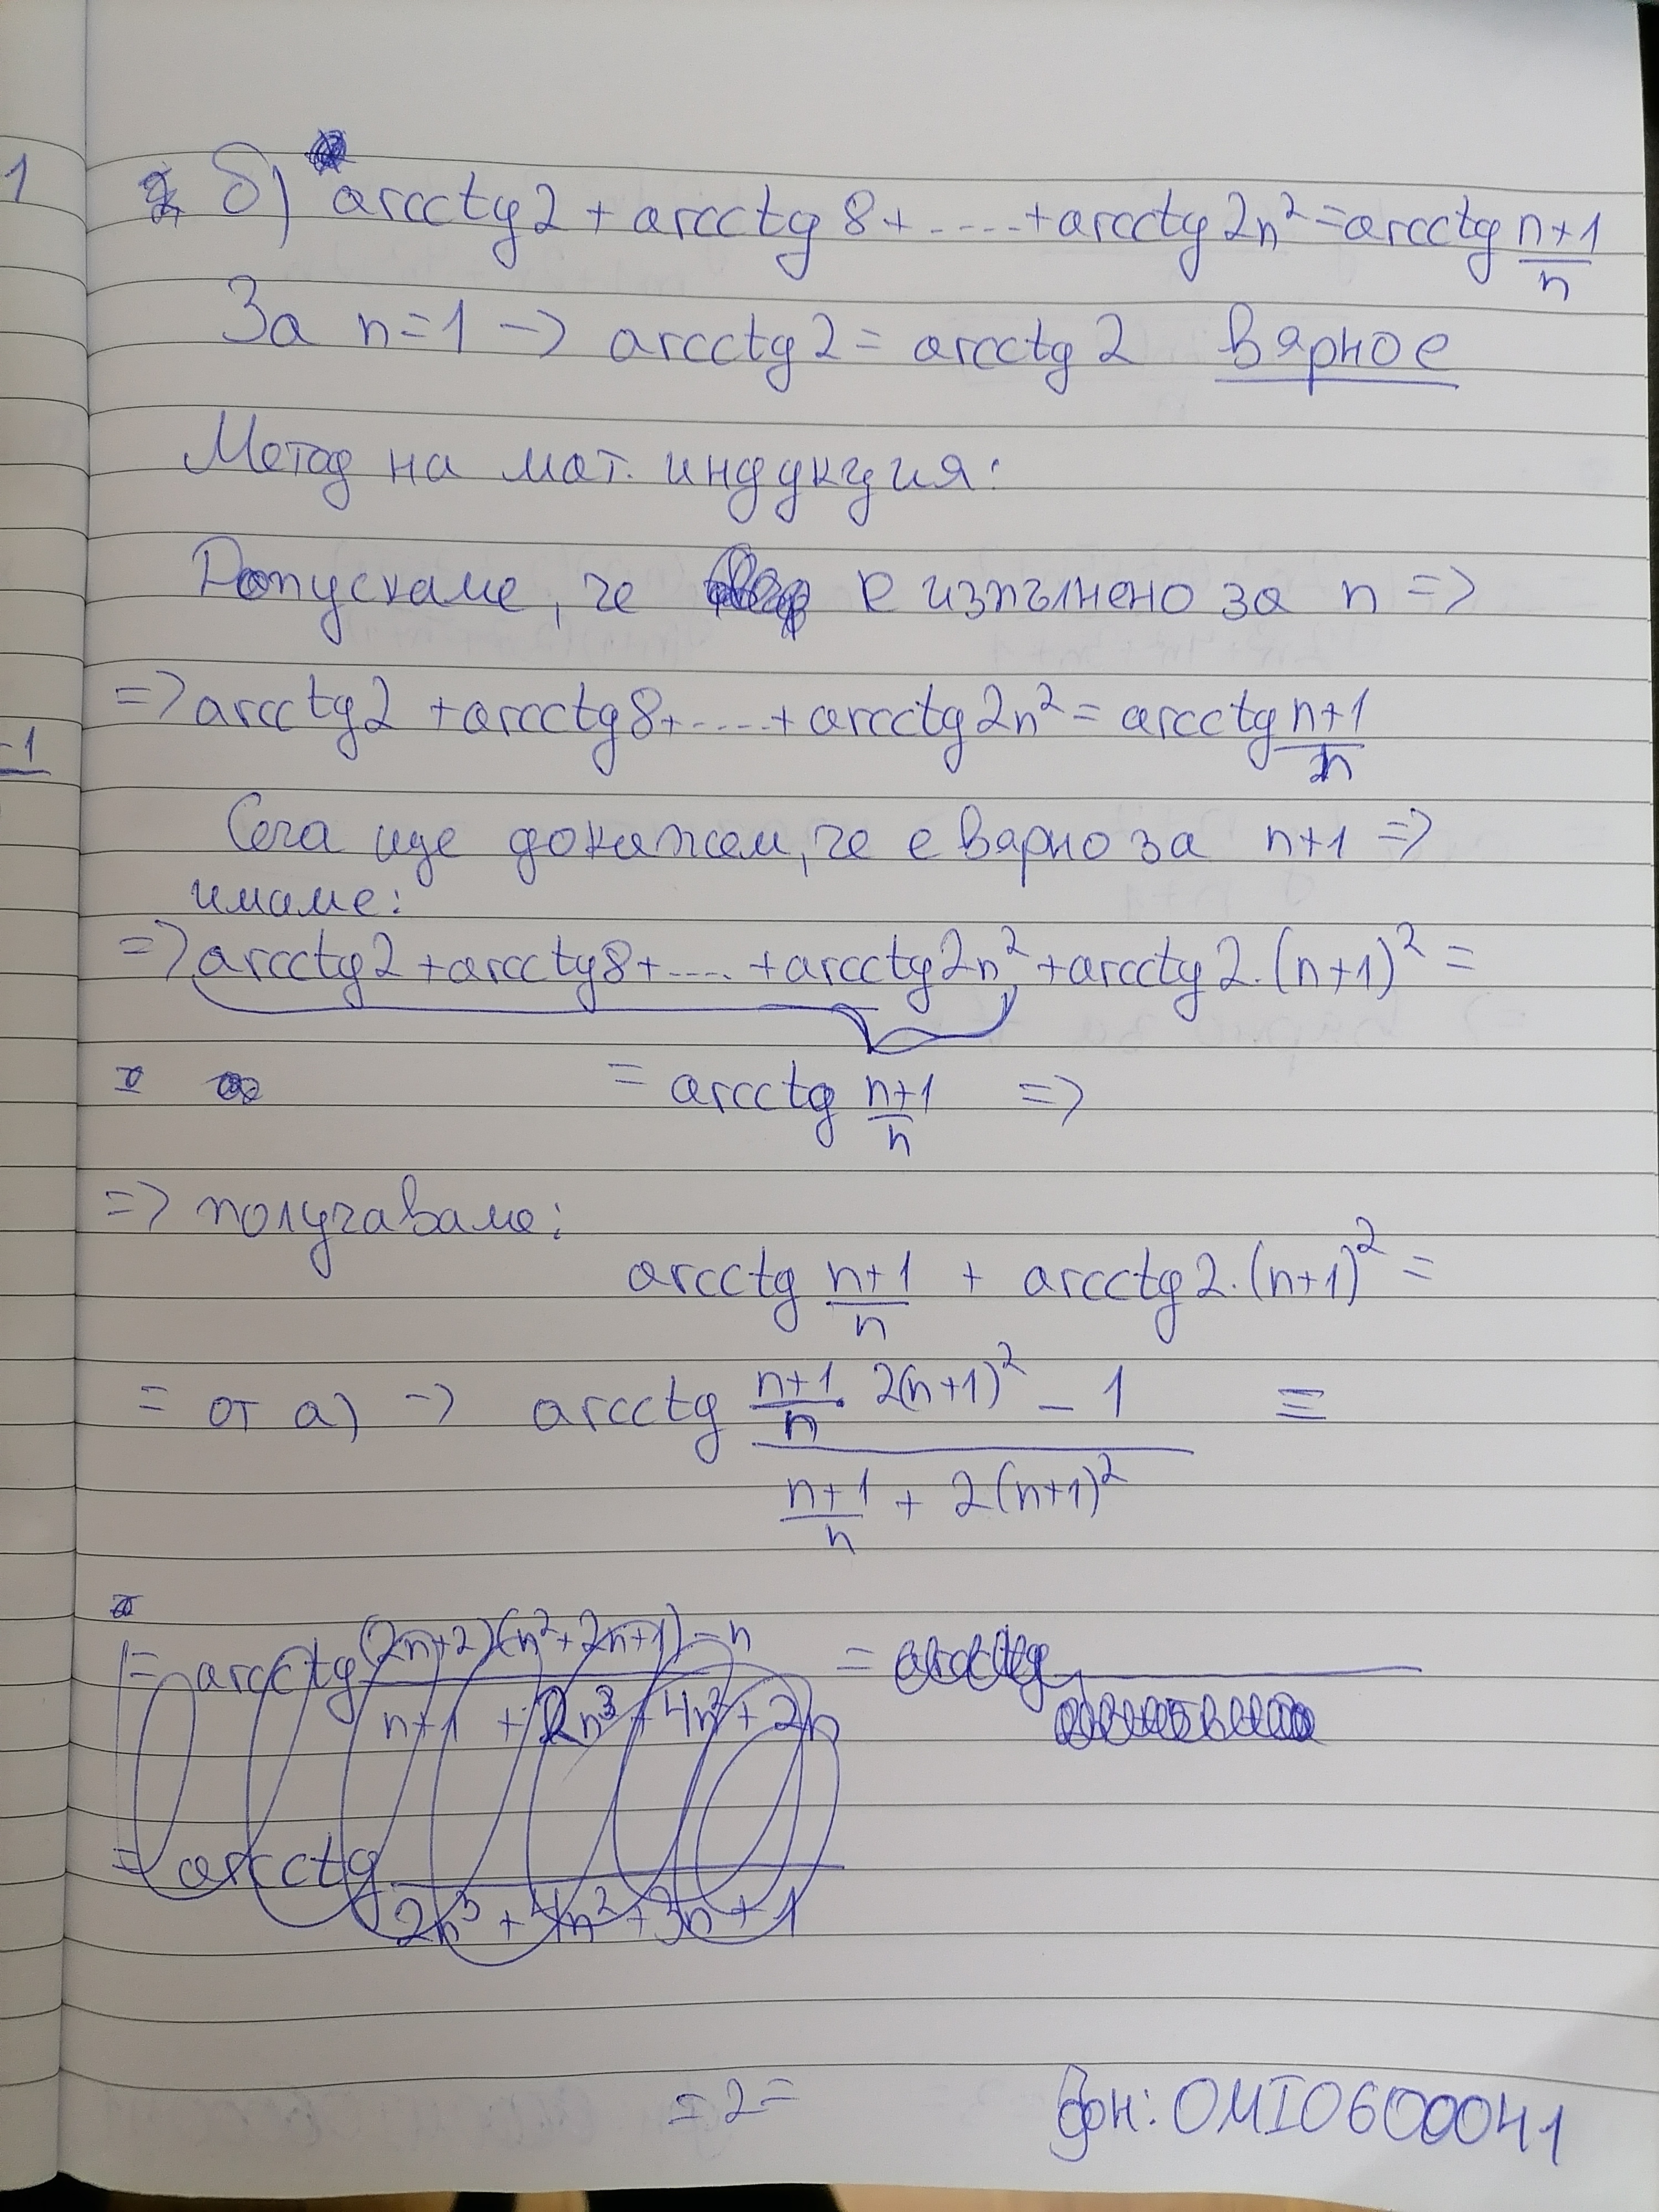 1
б) arcctg2 + arcctg8 + ..... + arcctg2n² = arcctg (n+1)/n
За n=1 -> arcctg2 = arcctg2 вярно е
Метод на мат. индукция:
Допускаме, че е изпълнено за n =>
=> arcctg2 + arcctg8 + ..... + arcctg2n² = arcctg (n+1)/n
-1
Сега ще докажем, че е вярно за n+1 =>
имаме:
=> arcctg2 + arcctg8 + ..... + arcctg2n² + arcctg2.(n+1)² =
= arcctg (n+1)/n =>
=> получаваме:
arcctg (n+1)/n + arcctg2.(n+1)² =
= от а) -> arcctg ((n+1)/n . 2(n+1)² - 1)/((n+1)/n + 2(n+1)²) =
= arcctg ((2n+2)(n²+2n+1) - n)/(n+1 + 2n³ + 4n² + 2n) =
= arcctg /(2n³ + 4n² + 3n + 1)
= 2 =
фн: 0MI0600041